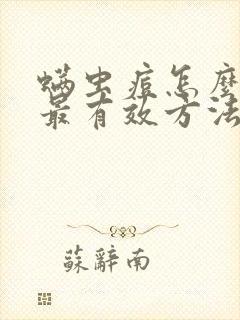 螨虫痘怎麼
最有效方法
蘇辭南